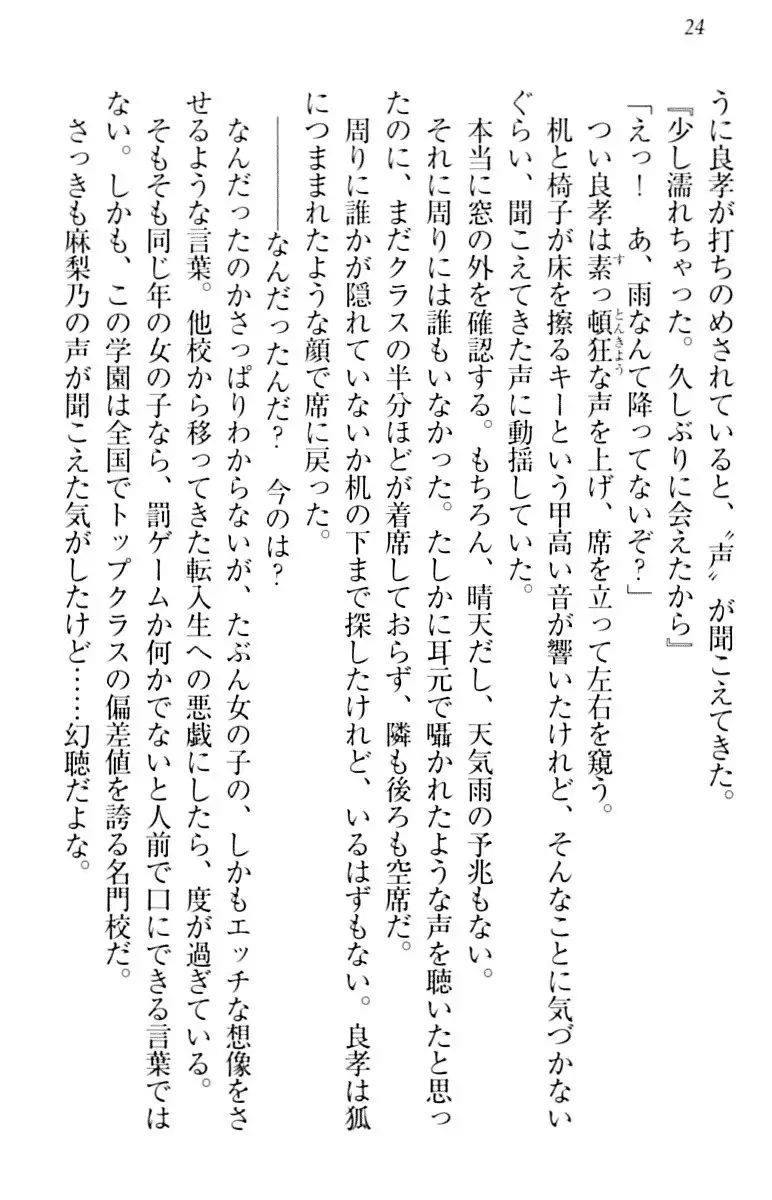 24
うに良孝が打ちのめされていると、〝声〟が聞こえてきた。
『少し濡れちゃった。久しぶりに会えたから』
「えっ！　あ、雨なんて降ってないぞ？」
つい良孝は素っ頓狂な声を上げ、席を立って左右を窺う。
机と椅子が床を擦るキーという甲高い音が響いたけれど、そんなことに気づかない
ぐらい、聞こえてきた声に動揺していた。
本当に窓の外を確認する。もちろん、晴天だし、天気雨の予兆もない。
それに周りには誰もいなかった。たしかに耳元で囁かれたような声を聴いたと思っ
たのに、まだクラスの半分ほどが着席しておらず、隣も後ろも空席だ。
周りに誰かが隠れていないか机の下まで探したけれど、いるはずもない。良孝は狐
につままれたような顔で席に戻った。
――――なんだったんだ？　今のは？
なんだったのかさっぱりわからないが、たぶん女の子の、しかもエッチな想像をさ
せるような言葉。他校から移ってきた転入生への悪戯にしたら、度が過ぎている。
そもそも同じ年の女の子なら、罰ゲームか何かでないと人前で口にできる言葉では
ない。しかも、この学園は全国でトップクラスの偏差値を誇る名門校だ。
さっきも麻梨乃の声が聞こえた気がしたけど……幻聴だよな。